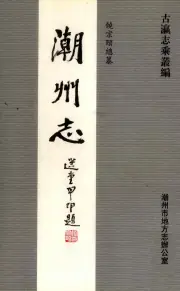 古瀛志乘叢編
饒宗頤總纂
潮州志
選堂甲申題
潮州市地方志辦公室